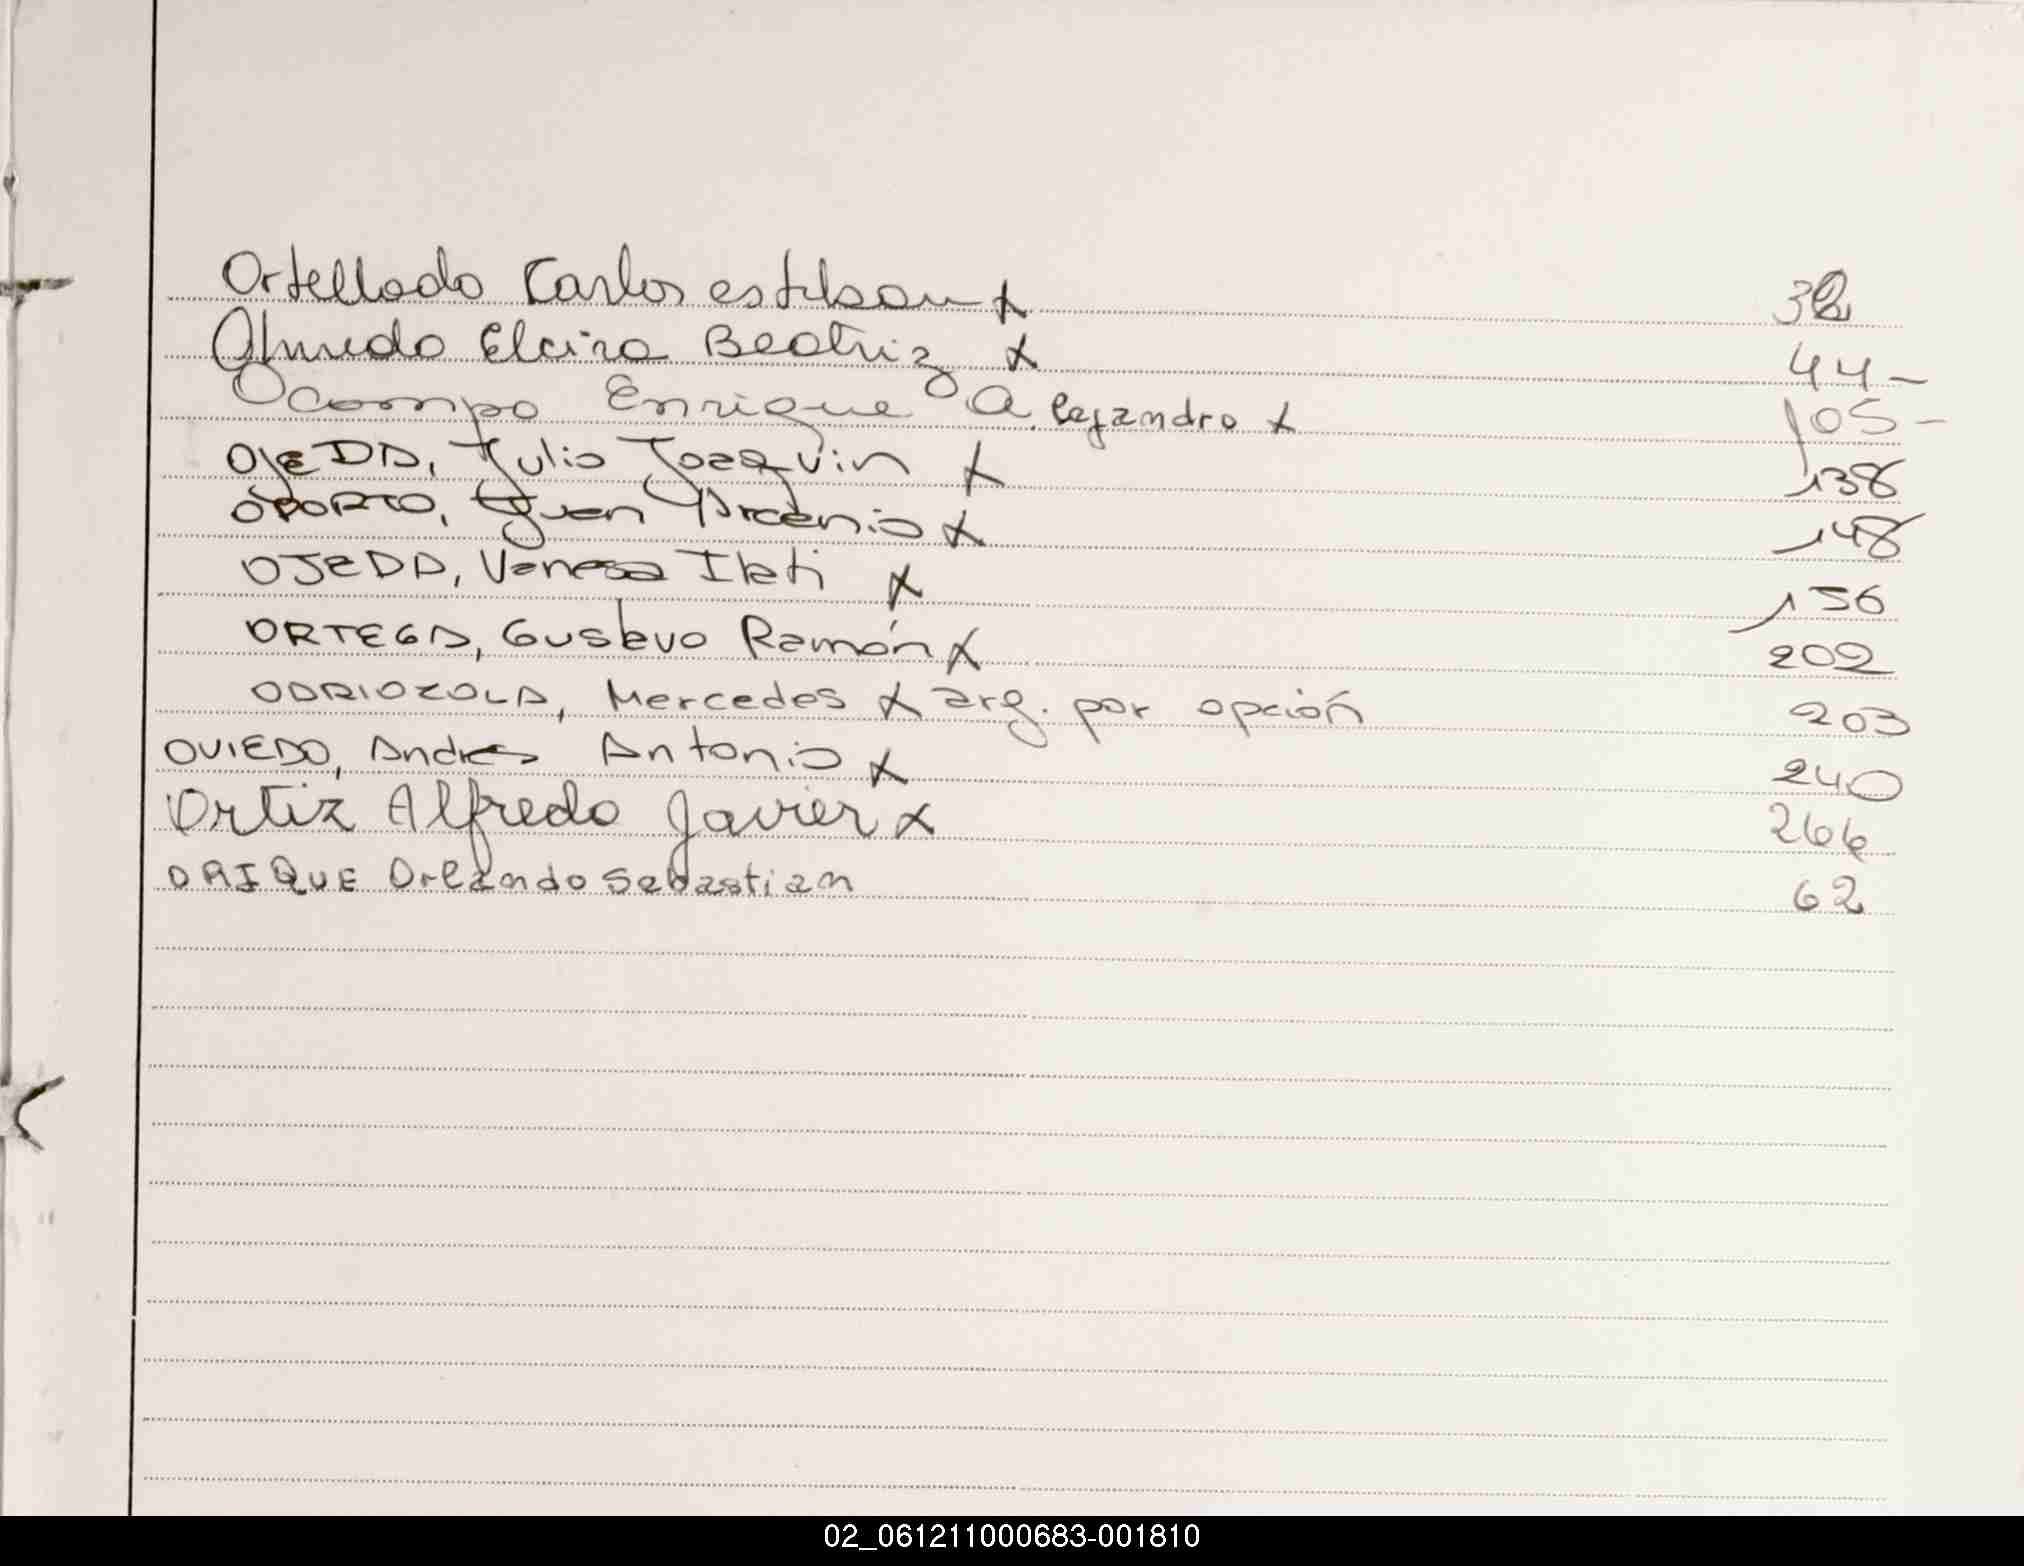 Ortellado Carlos estilson x 32
Olmedo Elcira Beatriz x 44-
Ocampo Enrique A. lejandro x 105-
OJEDA, Julio Joaquin x 138
OPORTO, Juan Arcenio x 148
OJEDA, Vanesa Itati x 156
ORTEGA, Gustavo Ramón x 202
ODRIOZOLA, Mercedes x arg. por opción 203
OVIEDO, Andres Antonio x 240
Ortiz Alfredo Javier x 266
ORIQUE Orlando Sebastian 62
02_061211000683-001810